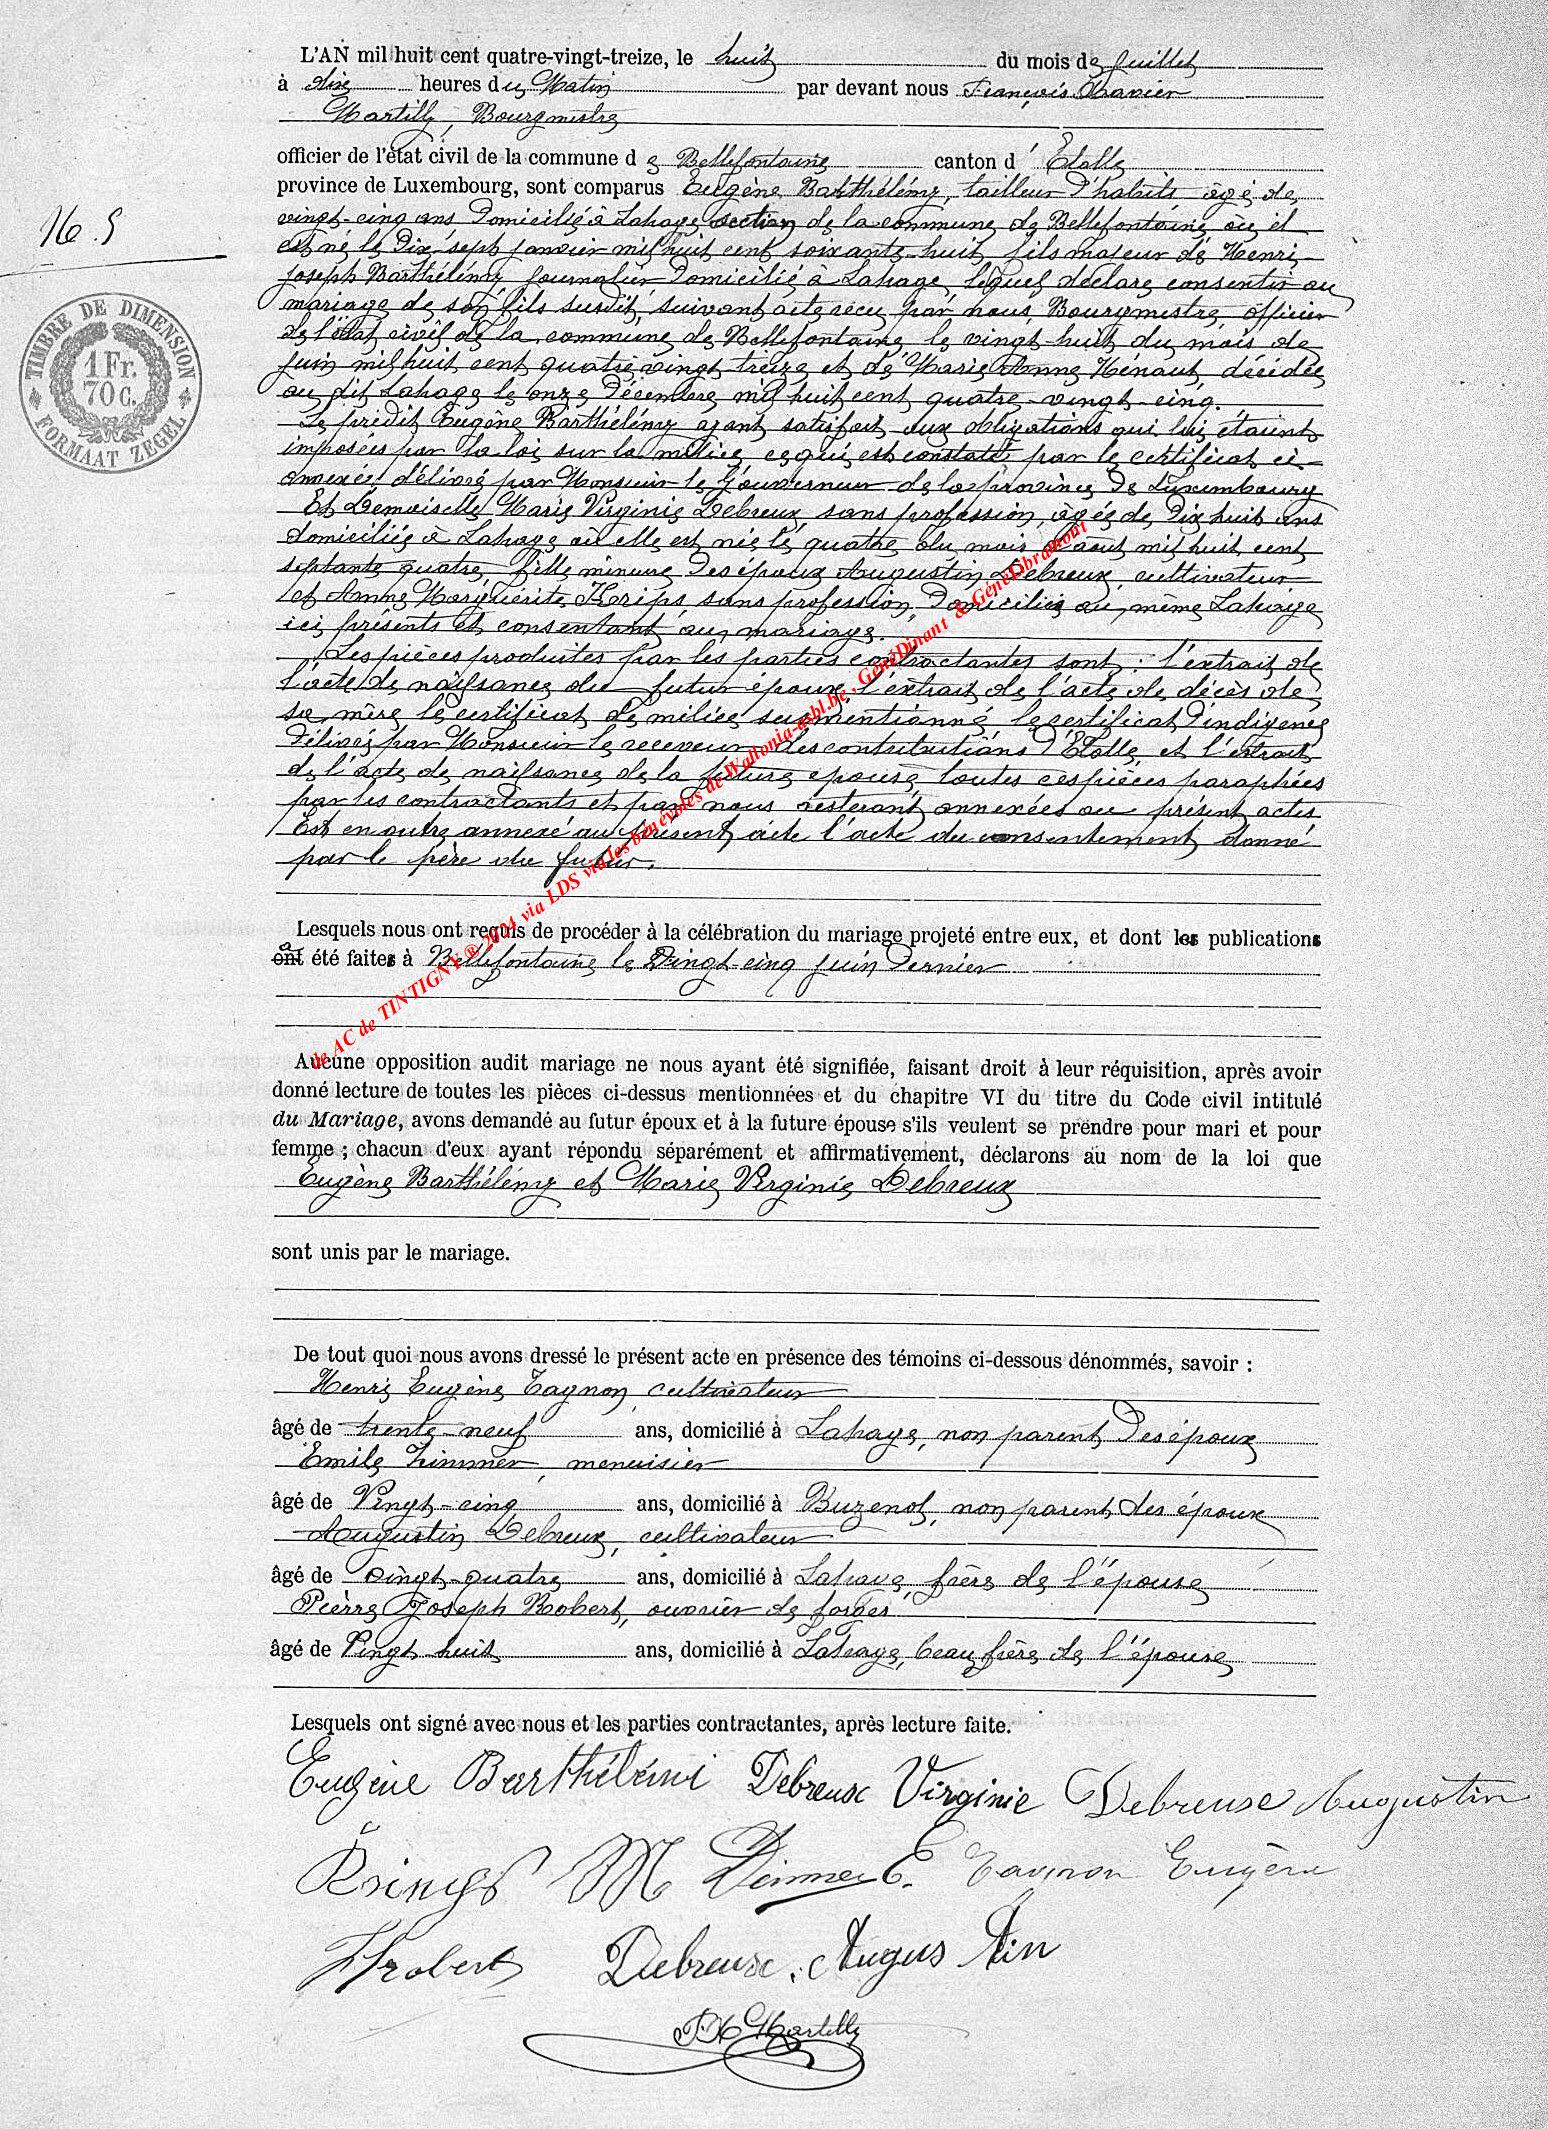 L'AN mil huit cent quatre-vingt-treize, le huit du mois de Juillet
à dix heures du Matin par devant nous François Xavier
Martilly, Bourgmestre
officier de l'état civil de la commune de Bellefontaine canton d'Etalle
province de Luxembourg, sont comparus Eugène Barthélémy, tailleur d'habits âgé de
vingt-cinq ans domicilié à Lahage section de la commune de Bellefontaine où il
est né le dix-sept janvier mil huit cent soixante-huit, fils majeur de Henri-
Joseph Barthélémy, journalier domicilié à Lahage, lequel déclare consentir au
mariage de son fils susdit, suivant acte reçu par nous Bourgmestre officier
de l'état civil de la commune de Bellefontaine le vingt-huit du mois de
juin mil huit cent quatre vingt treize et de Marie Anne Hénaut, décédée
au dit Lahage le onze Décembre mil huit cent quatre-vingt-cinq.
Le prédit Eugène Barthélémy ayant satisfait aux obligations qui lui étaient
imposées par la loi sur la milice, ce qui est constaté par le certificat ci-
annexé, délivré par Monsieur le Gouverneur de la province de Luxembourg
Et Demoiselle Marie Virginie Debreux, sans profession, âgée de Dix huit ans
domiciliée à Lahage où elle est née le quatre du mois d'août mil huit cent
septante quatre, fille mineure des époux Augustin Debreux, cultivateur
et Anne Marguérite Krips, sans profession, domiciliés au même Lahage
ici présents et consentant au mariage.
Les pièces produites par les parties contractantes sont : l'extrait de
l'acte de naissance du futur époux, l'extrait de l'acte de décès de
sa mère, le certificat de milice susmentionné, le certificat d'indigence
délivré par Monsieur le receveur des contributions d'Etalle, et l'extrait
de l'acte de naissance de la future épouse, toutes ces pièces paraphées
par les contractants et par nous resteront annexées au présent acte.
Est en outre annexé au présent acte l'acte du consentement donné
par le père du futur.
No. 5
TIMBRE DE DIMENSION
1 Fr.
70 C.
FORMAAT ZEGEL
de AC de TINTIGNY ® 2024 via LDS via les bénévoles de Wallonia-asbl.be, GénéDinant & GénéLibramont
Lesquels nous ont requis de procéder à la célébration du mariage projeté entre eux, et dont les publications
ont a été faites à Bellefontaine le Vingt-cinq juin dernier
Aucune opposition audit mariage ne nous ayant été signifiée, faisant droit à leur réquisition, après avoir
donné lecture de toutes les pièces ci-dessus mentionnées et du chapitre VI du titre du Code civil intitulé
du Mariage, avons demandé au futur époux et à la future épouse s'ils veulent se prendre pour mari et pour
femme ; chacun d'eux ayant répondu séparément et affirmativement, déclarons au nom de la loi que
Eugène Barthélémy et Marie Virginie Debreux
sont unis par le mariage.
De tout quoi nous avons dressé le présent acte en présence des témoins ci-dessous dénommés, savoir :
Henri Eugène Tagnon, cultivateur
âgé de trente-neuf ans, domicilié à Lahage, non parent des époux
Emile Zimmer, menuisier
âgé de Vingt-cinq ans, domicilié à Buzenol, non parent des époux
Augustin Debreux, cultivateur
âgé de vingt-quatre ans, domicilié à Lahage, frère de l'épouse
Pierre Joseph Robert, ouvrier de forges
âgé de Vingt huit ans, domicilié à Lahage, beau frère de l'épouse
Lesquels ont signé avec nous et les parties contractantes, après lecture faite.
Eugène Barthélémi Debreux Virginie Debreux Augustin
M E. Tagnon Eugène
Robert Debreux Augustin
Martilly